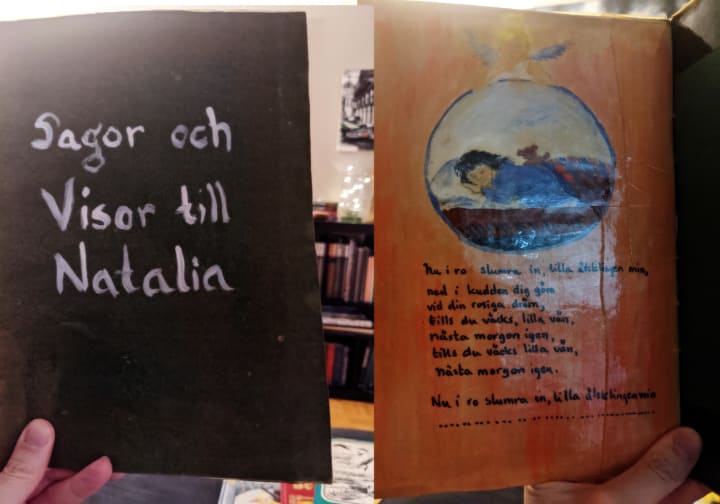 Sagor och
Visor till
Natalia
Nu i ro slumra in, lilla älsklingen min,
ned i kudden dig göm
vid din rosiga dröm,
tills du väcks, lilla vän,
nästa morgon igen,
tills du väcks lilla vän,
nästa morgon igen.
Nu i ro slumra in, lilla älsklingen min
................................